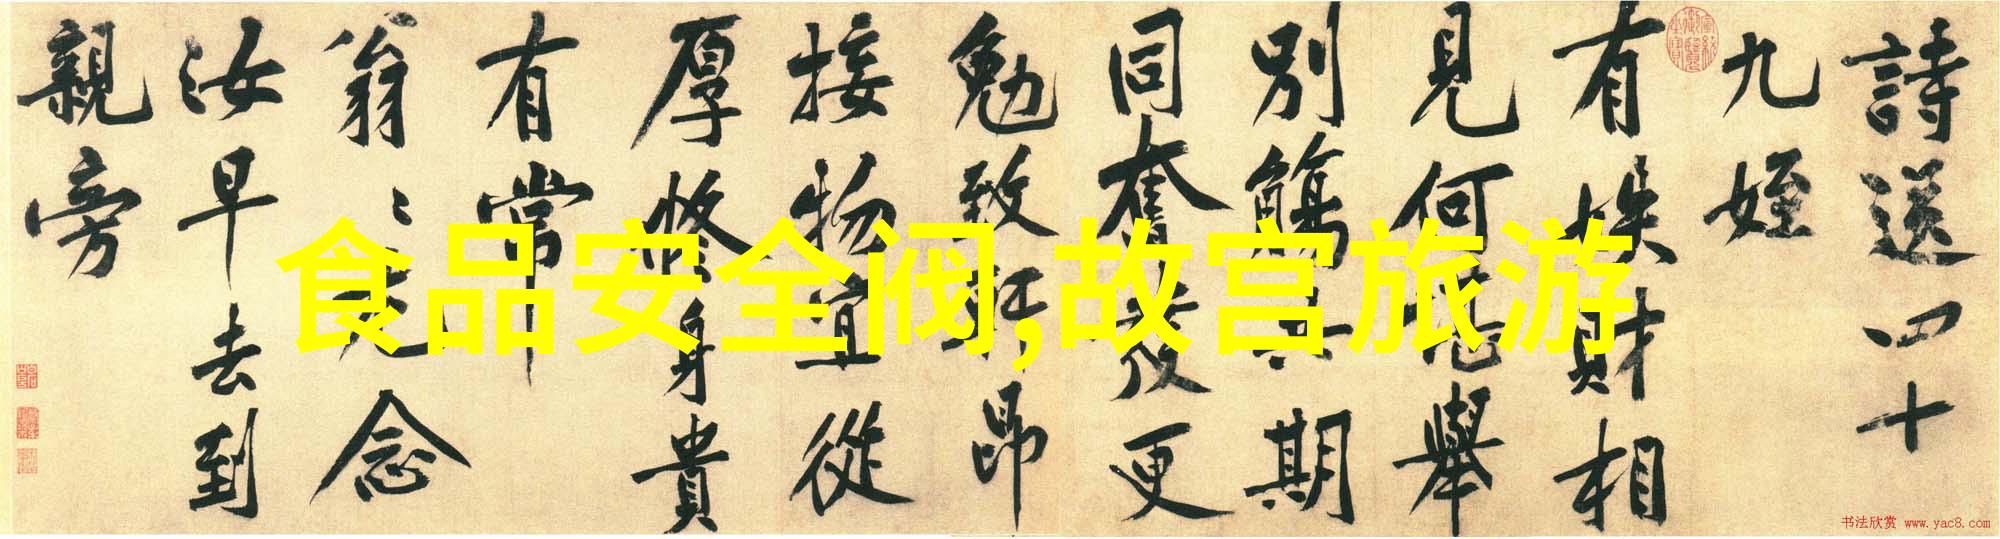 詩送四十
九姪
有財相
見何舉
別觴期
同奮發更
勉致昂
接物宜從
厚修身貴
有常
翁〻念
汝早去到
親旁
食品安全阀,故宫旅游
书法欣赏 www.yac8.com